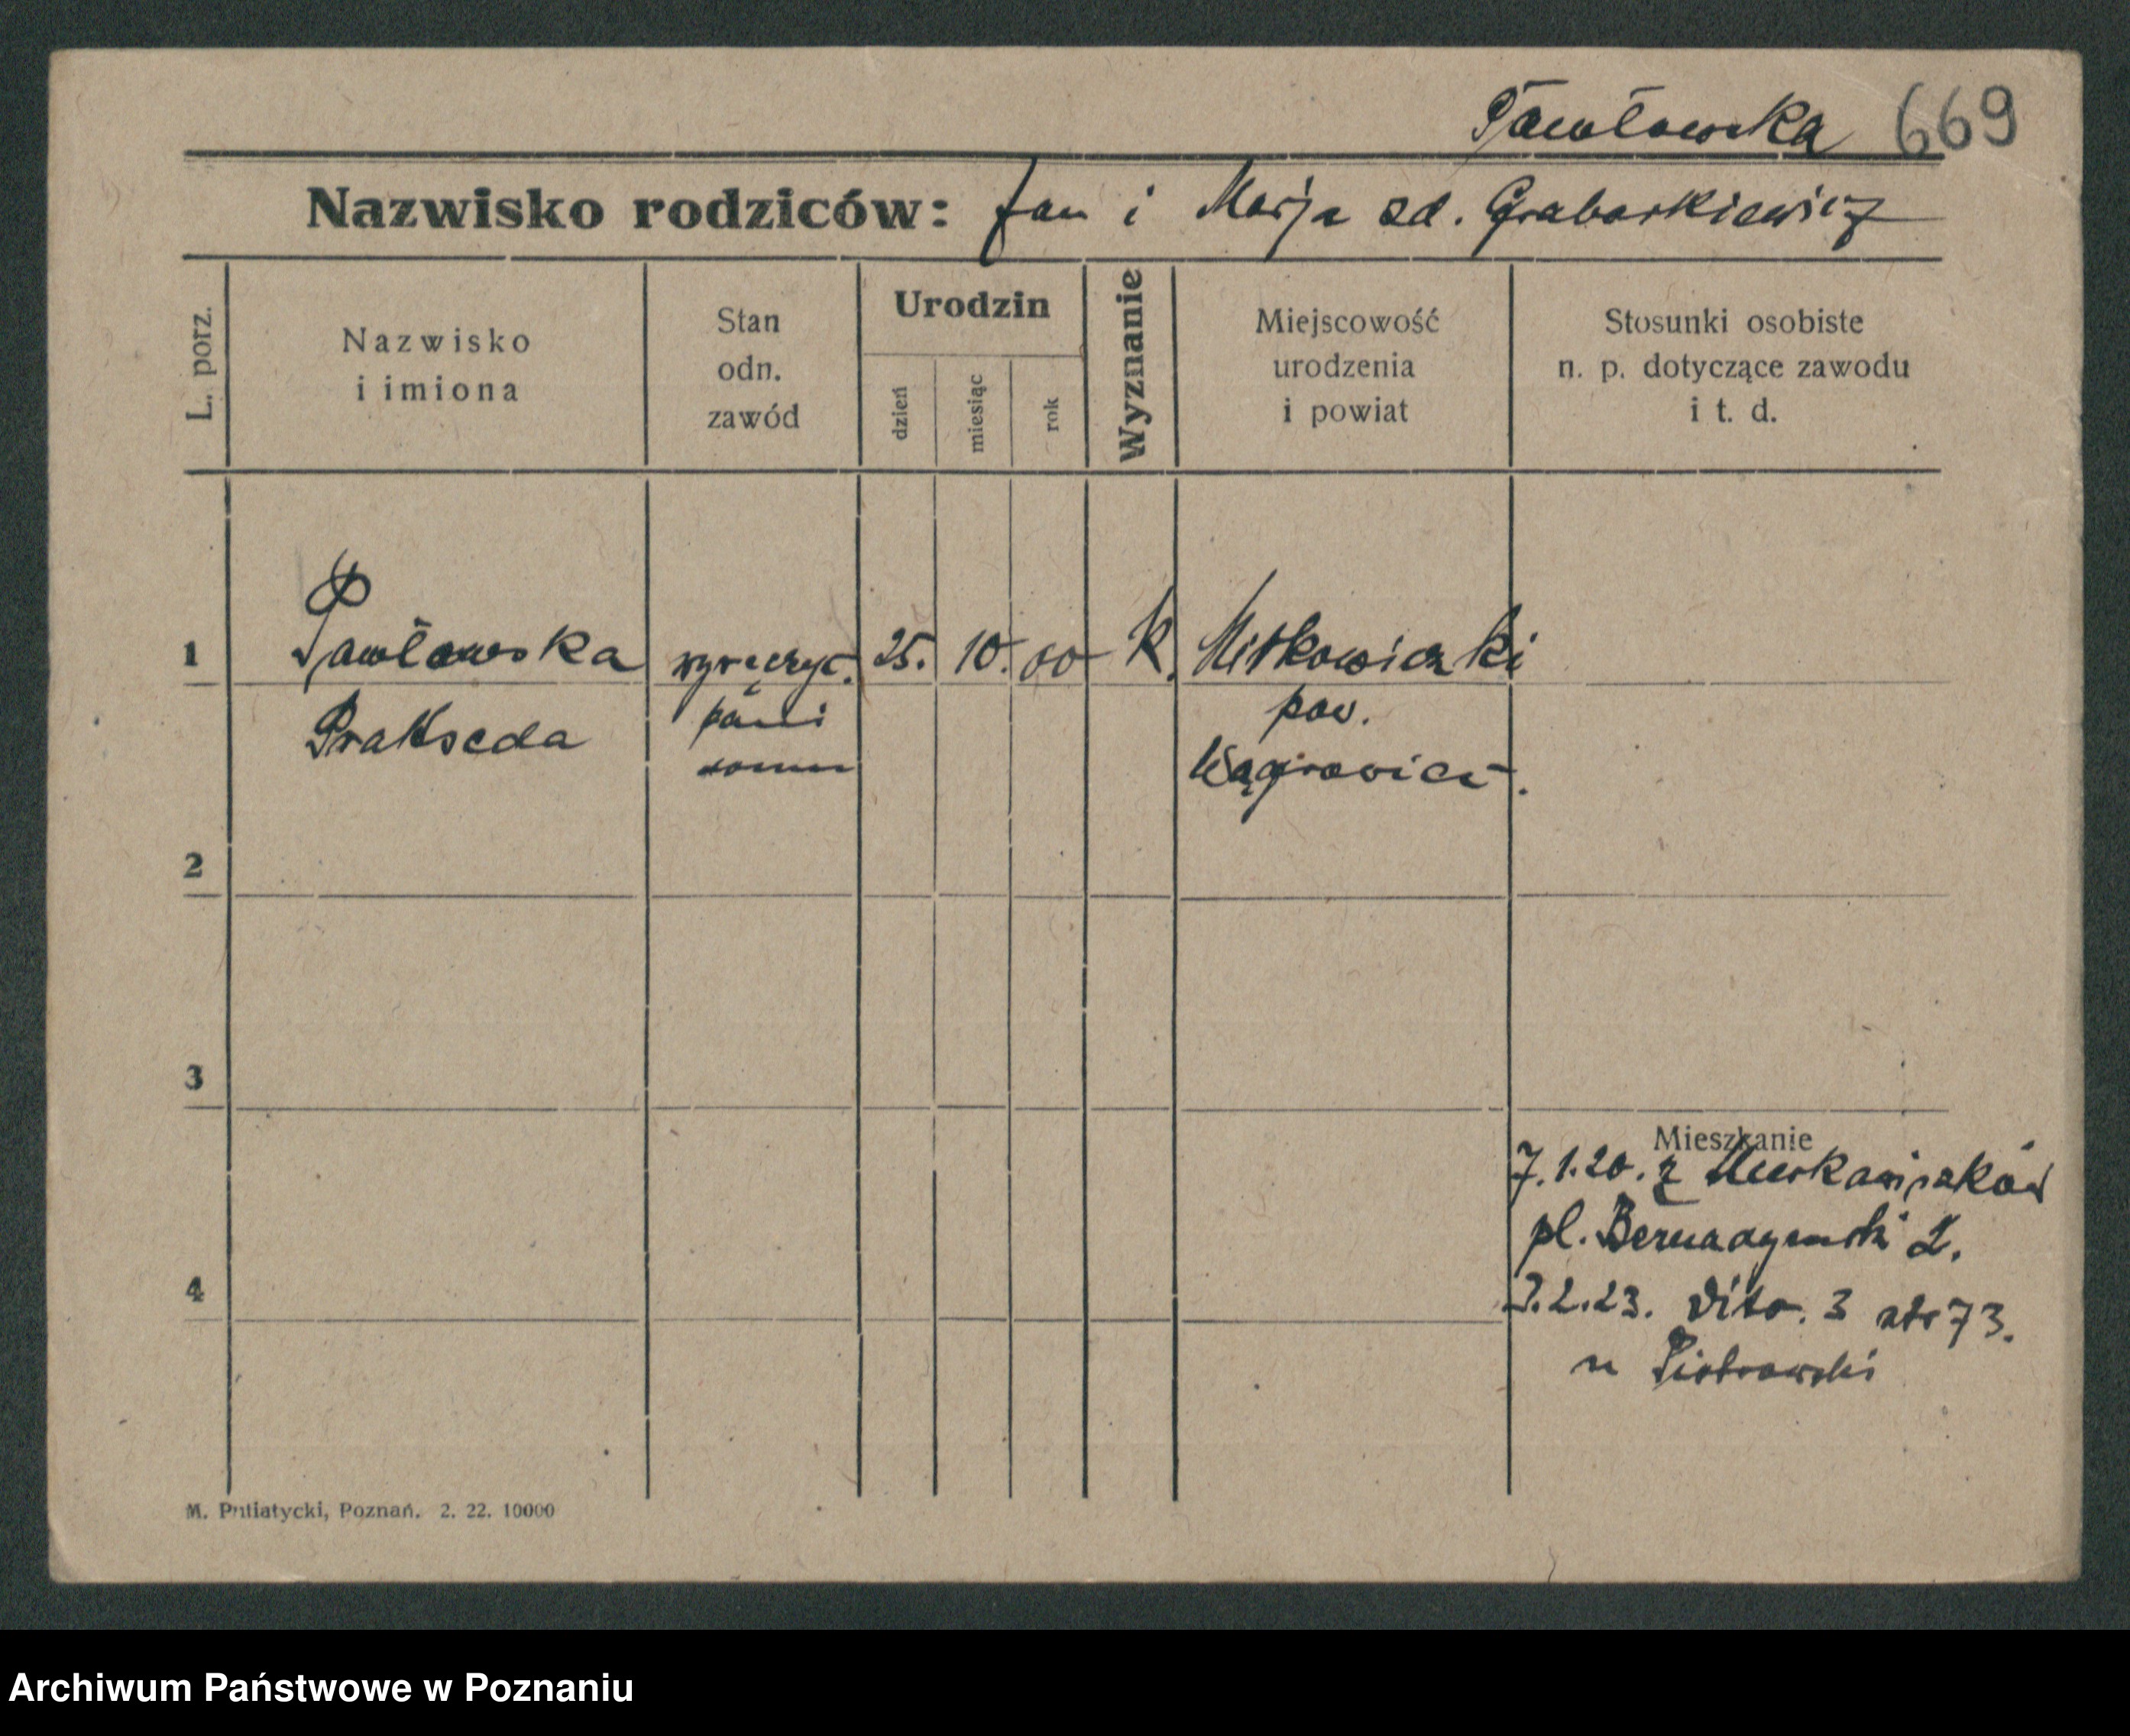 Pawłowska 669
Nazwisko rodziców: Jan i Marja zd. Grabarkiewicz
L. porz.
Nazwisko
i imiona
Stan
odn.
zawód
Urodzin
dzień
miesiąc
rok
Wyznanie
Miejscowość
urodzenia
i powiat
Stosunki osobiste
n. p. dotyczące zawodu
i t. d.
1
Pawłowska
Prakseda
wyręczyc.
pani
domu
25. 10. 00 K.
pow.
Wągrowiec.
2
3
4
Mieszkanie
7.1.20. z
pl. Bernadynski 2.
3.2.23. dito. 3 73.
u Piotrowski
M. Putiatycki, Poznań. 2. 22. 10000
Archiwum Państwowe w Poznaniu